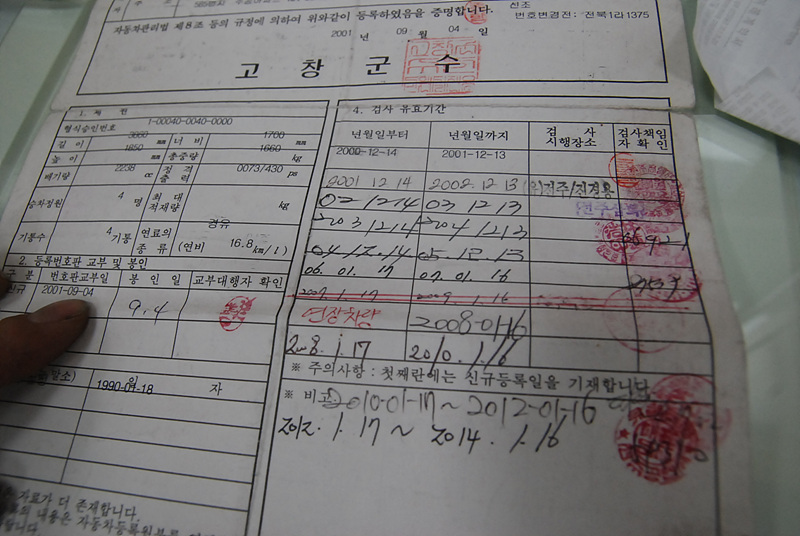 신조
번호변경전: 전북1라1375
자동차관리법 제8조 등의 규정에 의하여 위와같이 등록하였음을 증명합니다.
2001 년 09 월 04 일
고 창 군 수
1. 제 원
형식승인번호 1-00040-0040-0000
길 이 mm 너 비 1700 mm
높 이 1650 mm 총중량 1660 kg
배기량 2238 cc 정격출력 0073/430 ps
승차정원 4 명 최대적재량 kg
기통수 4 기통 연료의 종류 경유 (연비 16.8 km/l)
2. 등록번호판 교부 및 봉인
구 분 번호판교부일 봉 인 일 교부대행자 확인
2001-09-04 9.4
1990-01-18 자
자료가 더 존재합니다.
내용은 자동차등록원부를
4. 검사 유효기간
년월일부터 년월일까지 검 사 시행장소 검사책임자확인
2000-12-14 2001-12-13
2001 12 14 2002.12 13
02 12 14 03 12 13
2003 12 14 2004 12 13
04 12.14 05.12.13
06.01.17 07.01.16
연장차량 2008-01-16
2008.1.17 2010.1.16
※ 주의사항 : 첫째란에는 신규등록일을 기재합니다.
※ 비고 2010-01-17 ~ 2012-01-16
2012.1.17 ~ 2014.1.16